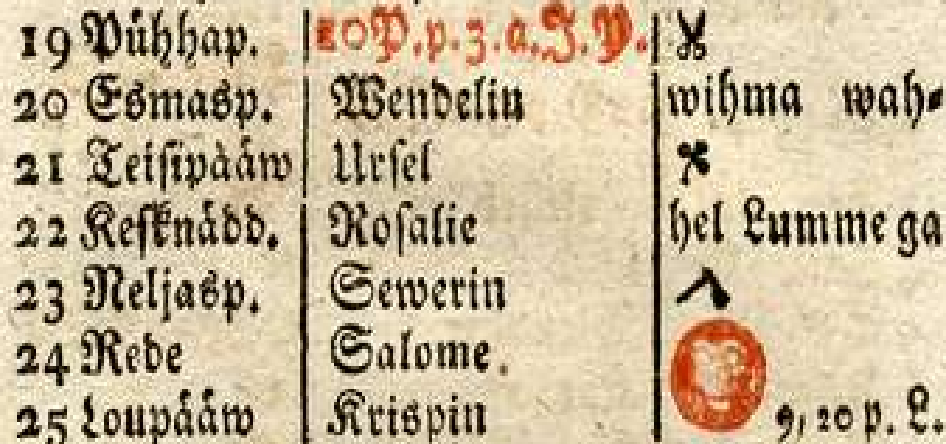 19 Pühhap. 20 P. p. 3. a. J. P.
20 Esmasp. Wendelin wihma wah-
21 Teisipääw Ursel
22 Kesknädd. Rosalie hel Lumme ga
23 Neljasp. Sewerin
24 Rede Salome.
25 Loupääw Krispin 9, 20 p. L.